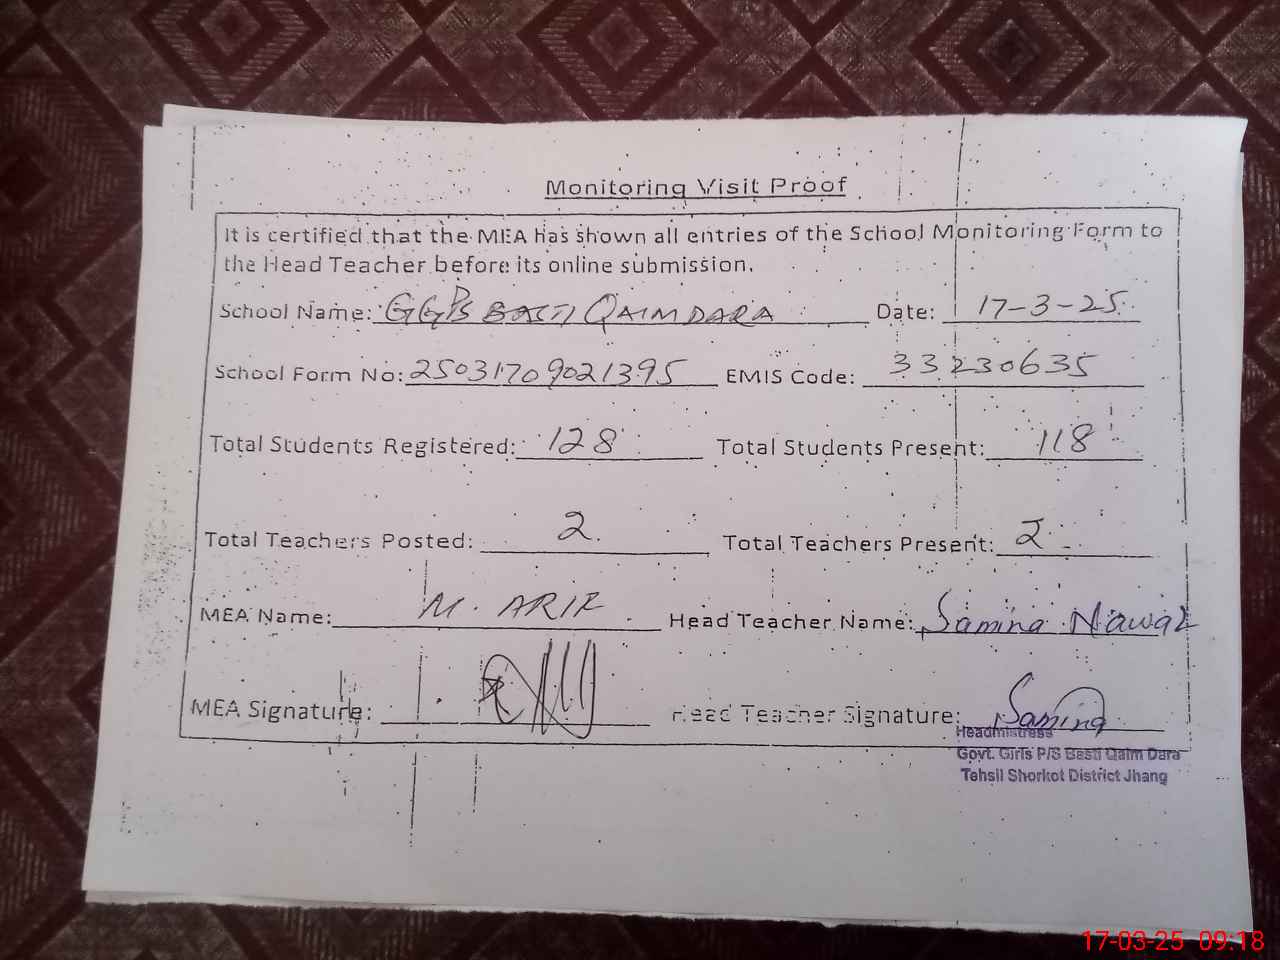 Monitoring Visit Proof
It is certified that the MEA has shown all entries of the School Monitoring Form to
the Head Teacher before its online submission.
School Name: GGPS BASTI QAIM DARA Date: 17-3-25
School Form No: 25031709021395 EMIS Code: 33230635
Total Students Registered: 128 Total Students Present: 118
Total Teachers Posted: 2 Total Teachers Present: 2
MEA Name: M. ARIF Head Teacher Name: Samina Nawaz
MEA Signature: Head Teacher Signature: Samina
Headmistress
Govt. Girls P/S Basti Qaim Dara
Tehsil Shorkot District Jhang
17-03-25 09:18